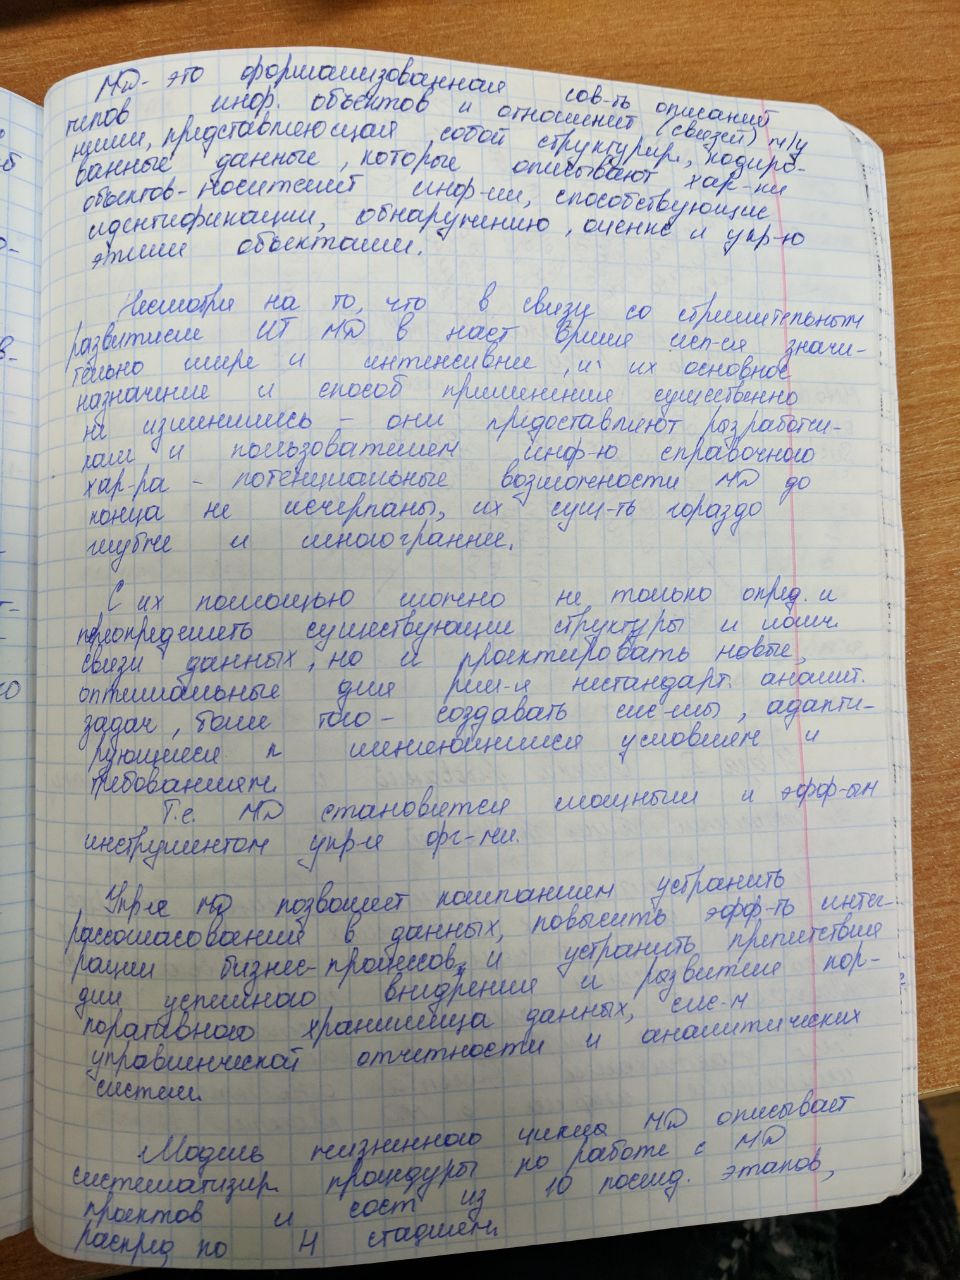 МД- это формализованная сов-ть описаний
типов инф. объектов и отношений (связей) м/у
ними, представляющая собой структурир., кодиро-
ванные данные, которые описывают хар-ки
объектов-носителей инф-ии, способствующие
идентификации, обнаружению, оценке и упр-ю
этими объектами.
Несмотря на то, что в связи со стремительным
развитием ИТ МД в наст время исп-ся значи-
тельно шире и интенсивнее, и их основное
назначение и способ применения существенно
не изменились - они предоставляют разработчи-
кам и пользователям инф-ю справочного
хар-ра - потенциальные возможности МД до
конца не исчерпаны, их сущ-ть гораздо
глубже и многограннее.
С их помощью можно не только опред. и
переопределять существующие структуры и логич.
связи данных, но и проектировать новые,
оптимальные для реш-я нестандарт. аналит.
задач, более того - создавать сис-мы, адапти-
рующиеся к меняющимся условиям и
требованиям.
Т.е. МД становятся мощным и эфф-ым
инструментом упр-я орг-ми.
Упр-е МД позволяет компаниям устранить
рассогласования в данных, повысить эфф-ть интег-
рации бизнес-процессов, и устранить препятствия
для успешного внедрения и развития кор-
поративного хранилища данных, сис-м
управленческой отчетности и аналитических
систем.
Модель жизненного цикла МД описывает
систематизир. процедуры по работе с МД
проектов и сост из 10 послед. этапов,
распред по 4 стадиям.